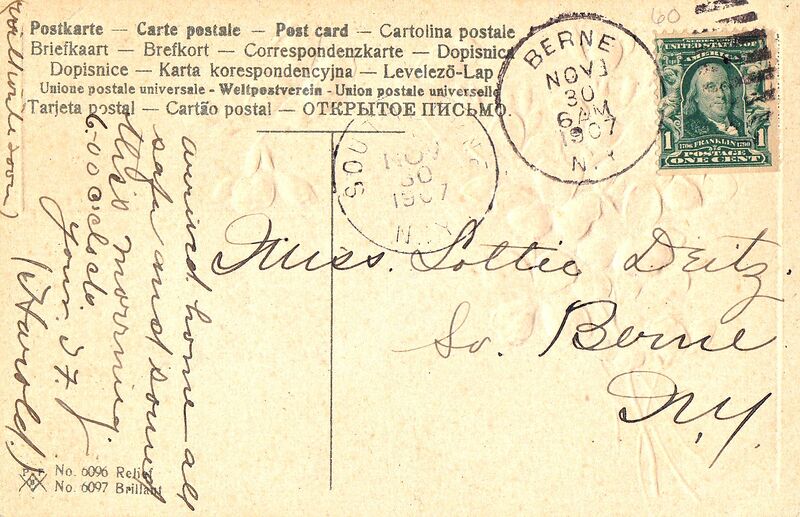 Postkarte — Carte postale — Post card — Cartolina postale
Briefkaart — Brefkort — Correspondenzkarte — Dopisnica
Dopisnice — Karta korespondencyjna — Levelező-Lap
Unione postale universale - Weltpostverein - Union postale universelle
Tarjeta postal — Cartão postal — ОТКРЫТОЕ ПИСЬМО.
60
BERNE
NOV
30
6 AM
1907
N.Y.
UNITED STATES OF AMERICA
1706 FRANKLIN 1790
1 POSTAGE 1
ONE CENT
NOV
30
1907
N.Y.
Miss. Lottie Deitz.
So. Berne
N.Y.
arrived home all
safe and sound
this morning
6:00 o'clock
Your
(Harold.)
(will write soon)
No. 6096 Relief
No. 6097 Brillant